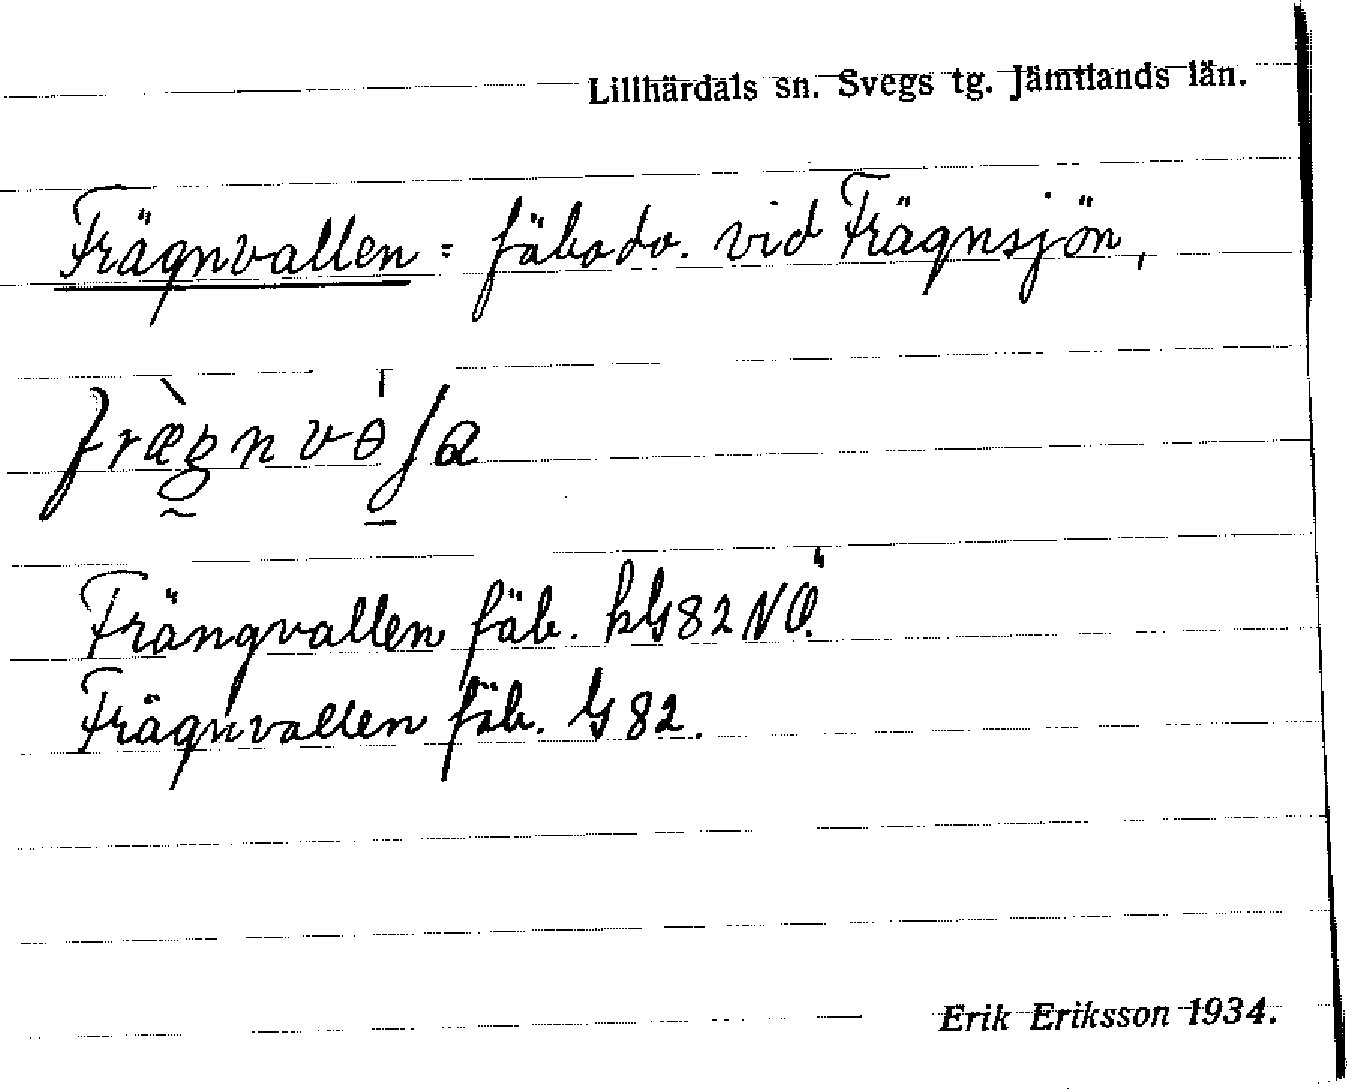 Lillhärdals sn. Svegs tg. Jämtlands län.
Frägnvallen = fäbodv. vid Frägnsjön,
Frängvallen fäb. kG82NÖ.
Frägnvallen fäb. G82.
Erik Eriksson 1934.